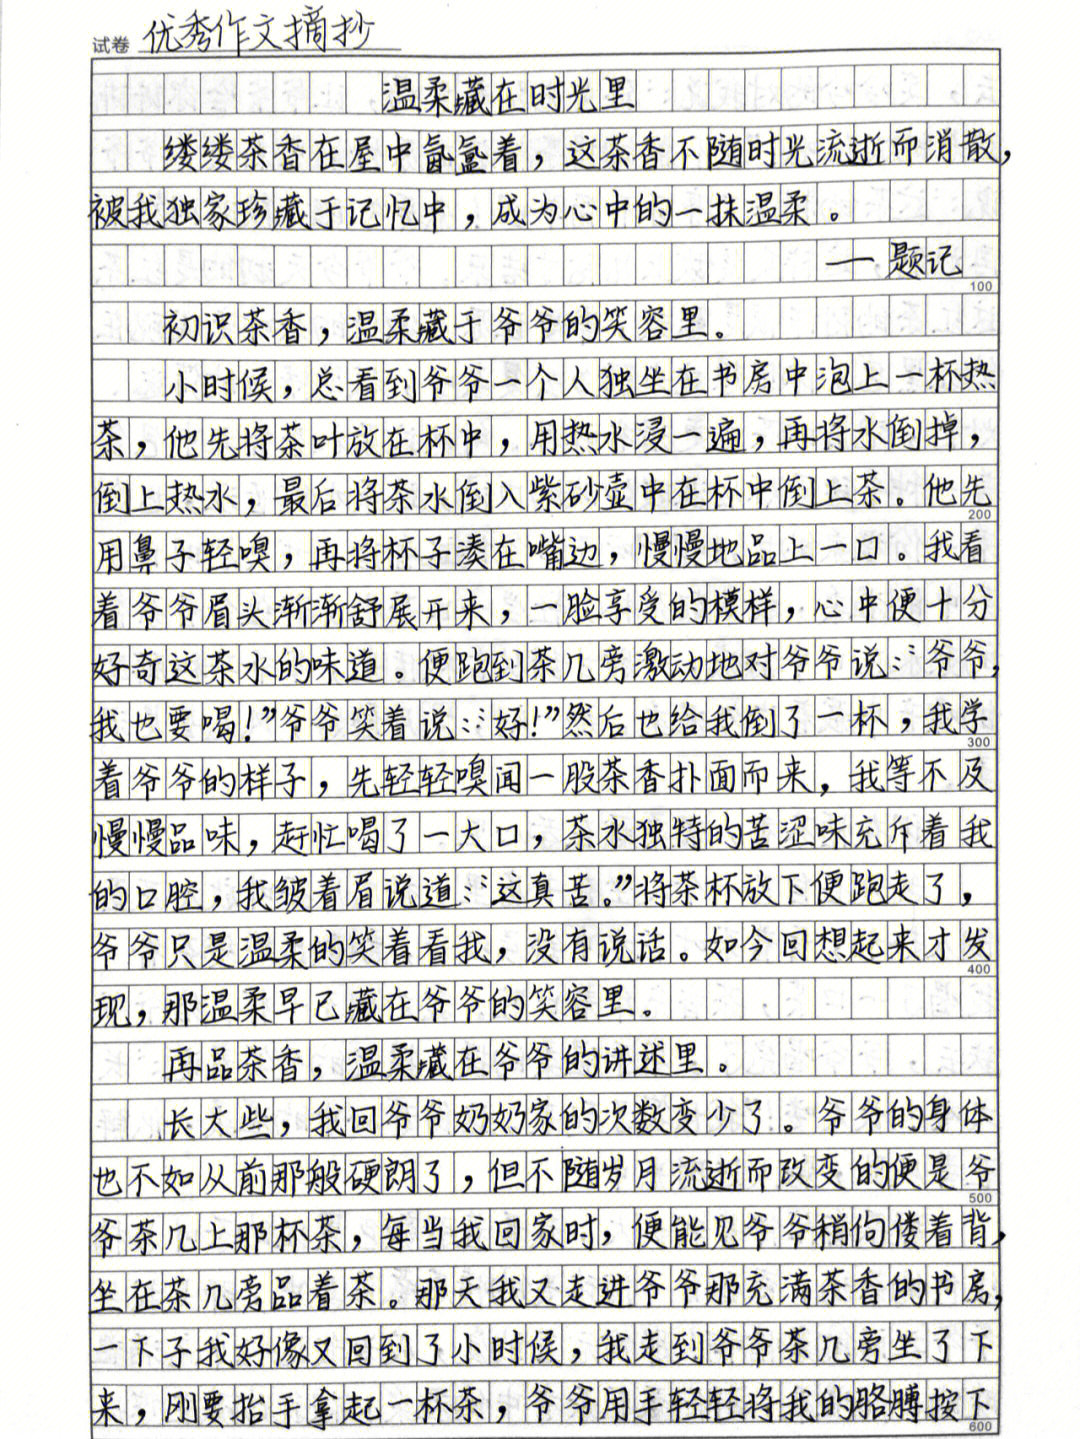 试卷 优秀作文摘抄
温柔藏在时光里
缕缕茶香在屋中氤氲着，这茶香不随时光流逝而消散，
被我独家珍藏于记忆中，成为心中的一抹温柔。
——题记
100
初识茶香，温柔藏于爷爷的笑容里。
小时候，总看到爷爷一个人独坐在书房中泡上一杯热
茶，他先将茶叶放在杯中，用热水浸一遍，再将水倒掉，
倒上热水，最后将茶水倒入紫砂壶中在杯中倒上茶。他先
200
用鼻子轻嗅，再将杯子凑在嘴边，慢慢地品上一口。我看
着爷爷眉头渐渐舒展开来，一脸享受的模样，心中便十分
好奇这茶水的味道。便跑到茶几旁激动地对爷爷说：“爷爷，
我也要喝！”爷爷笑着说：“好！”然后也给我倒了一杯，我学
300
着爷爷的样子，先轻轻嗅闻一股茶香扑面而来，我等不及
慢慢品味，赶忙喝了一大口，茶水独特的苦涩味充斥着我
的口腔，我皱着眉说道：“这真苦。”将茶杯放下便跑走了，
爷爷只是温柔的笑着看我，没有说话。如今回想起来才发
400
现，那温柔早已藏在爷爷的笑容里。
再品茶香，温柔藏在爷爷的讲述里。
长大些，我回爷爷奶奶家的次数变少了。爷爷的身体
也不如从前那般硬朗了，但不随岁月流逝而改变的便是爷
500
爷茶几上那杯茶，每当我回家时，便能见爷爷稍佝偻着背，
坐在茶几旁品着茶。那天我又走进爷爷那充满茶香的书房，
一下子我好像又回到了小时候，我走到爷爷茶几旁坐了下
来，刚要抬手拿起一杯茶，爷爷用手轻轻将我的胳膊按下
600